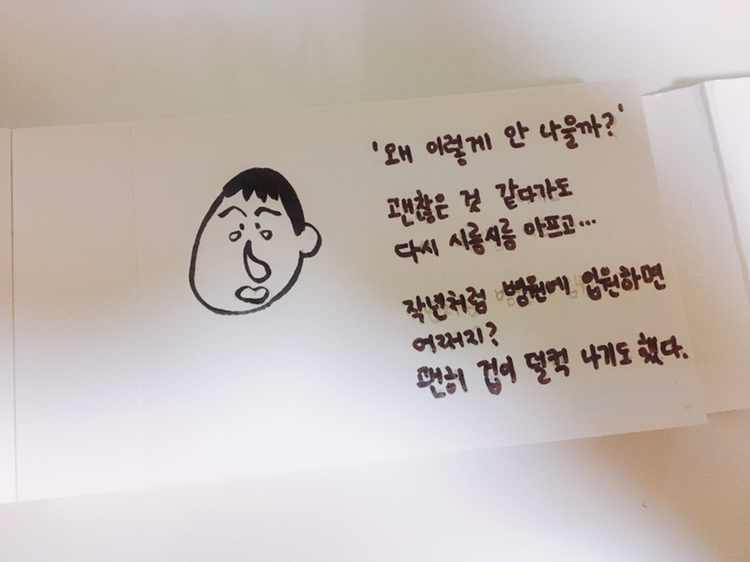 '왜 이렇게 안 나을까?'
괜찮은 것 같다가도
다시 시름시름 아프고...
작년처럼 병원에 입원하면
어쩌지?
괜히 겁이 덜컥 나기도 했다.